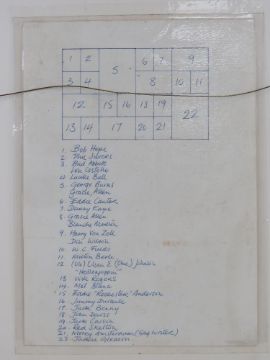 1 2 5 6 7 9
3 4 8 10 11
12 15 16 18 19 22
13 14 17 20 21
1. Bob Hope
2
3 Bud Abbott
Lou Costello
4 Lucille Ball
5 George Burns
Gracie Allen
6 Eddie Cantor
7 Danny Kaye
8 Gracie Allen
Blanche
9 Harry Von Zell
Don Wilson
10 W.C. Fields
11 Milton Berle
12 Olsen & Johnson
"Hellzapoppin"
13 Will Rogers
14 Mel Blanc
15 Eddie "Rochester" Anderson
16 Jimmy Durante
17 Jack Benny
18
19 Jack Carson
20 Red Skelton
21 Amsterdam (Gag writer)
22 Jackie Gleason